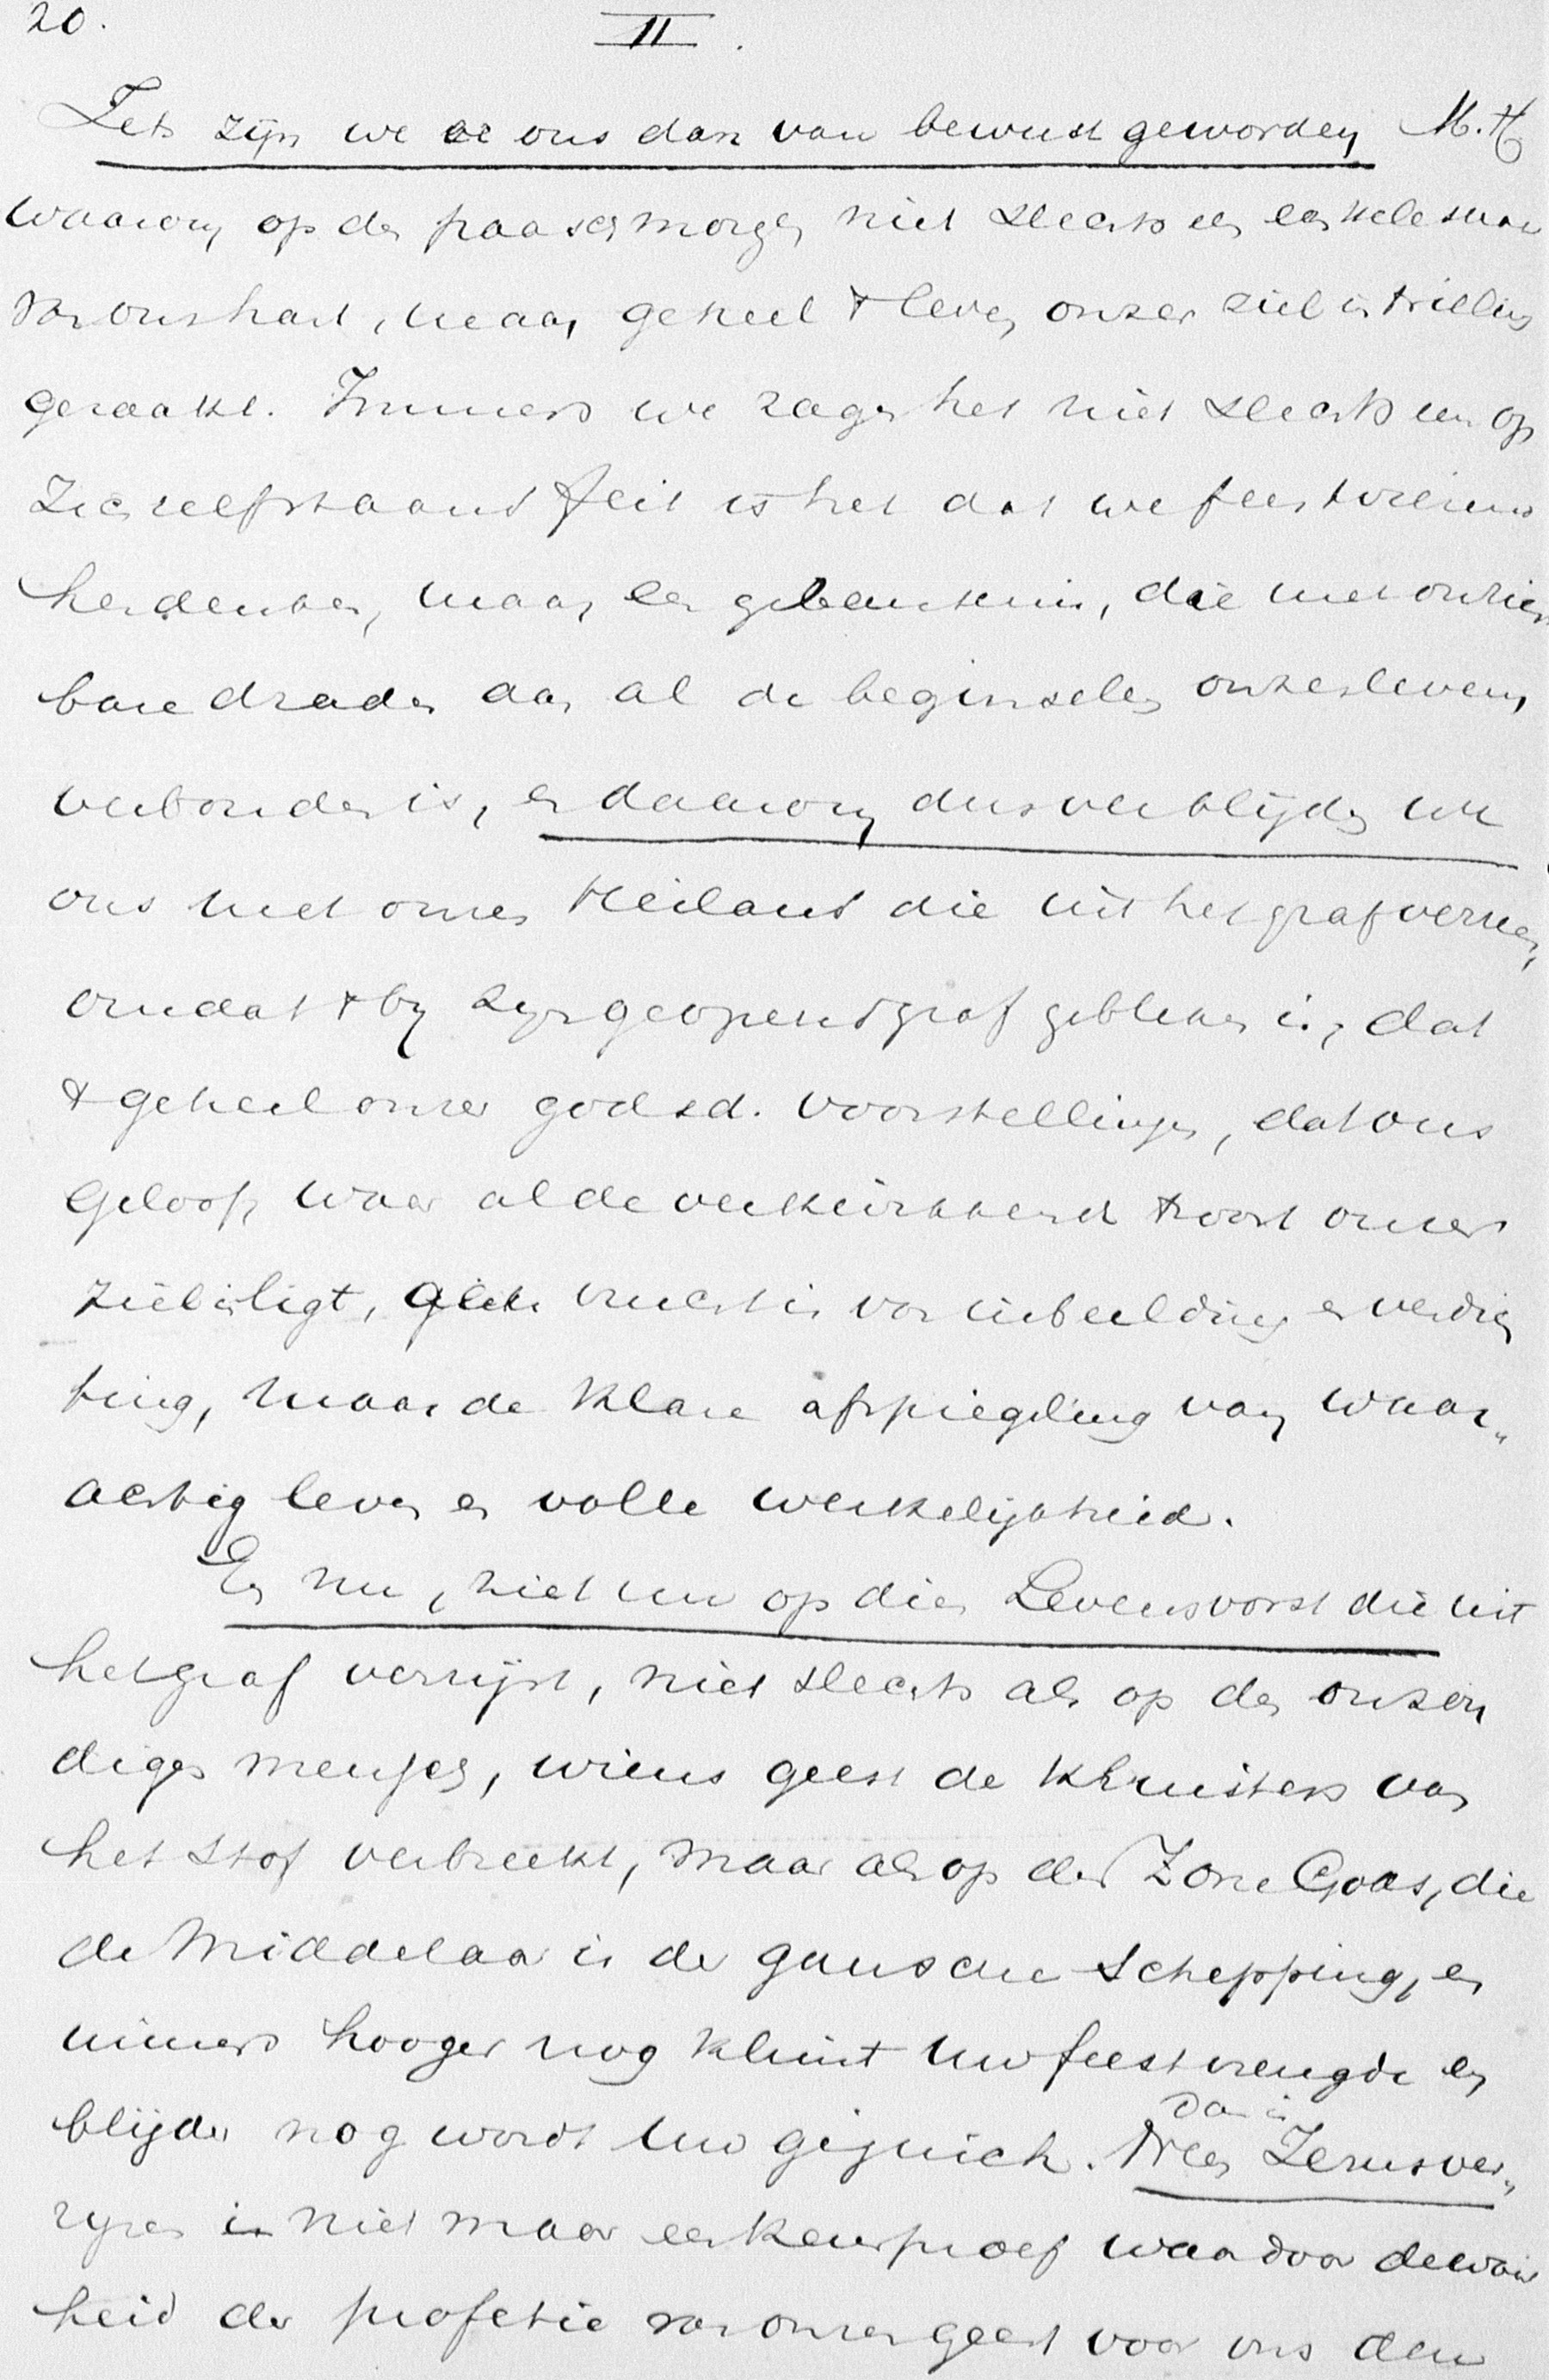 20.
II.
Iets zijn we er ons dan van bewust geworden M.H.
waarom op den paaschmorgen niet slechts een enkele snaar
van ons hart, maar geheel 't leven onzer ziel in trilling
geraakt. Immers we zagen het niet slechts een op
zichzelfstaand feit is het dat we feestvierend
herdenken, maar een gebeurtenis, die met onzien
bare draden aan al de beginselen onzes levens
verbonden is, en daarom dus verblijden we
ons met onzen Heiland die uit het graf verrees,
omdat 't bij zijn geopend graf gebleken is, dat
't geheel onzer godsd. voorstellingen, dat ons
geloof, waar al de verkwikkend troost onzer
ziel in ligt, geen vrucht is van inbeelding en verdich
ting, maar de klare afspiegeling van waar„
achtig leven en volle werkelijkheid.
En nu, ziet nu op dien Levensvorst die uit
het graf verrijst, niet slechts als op den onzon
digen mensch, wiens geest de kluisters van
het stof verbreekt, maar als op den Zone Gods, die
de Middelaar is der gansche schepping, en
immers hooger nog klimt uw feestvreugde en
blijder nog wordt uw gejuich. Dan is Jezus ver„
rijzen niet maar een keurproef waardoor de waar
heid der profetie van onzen geest voor ons den